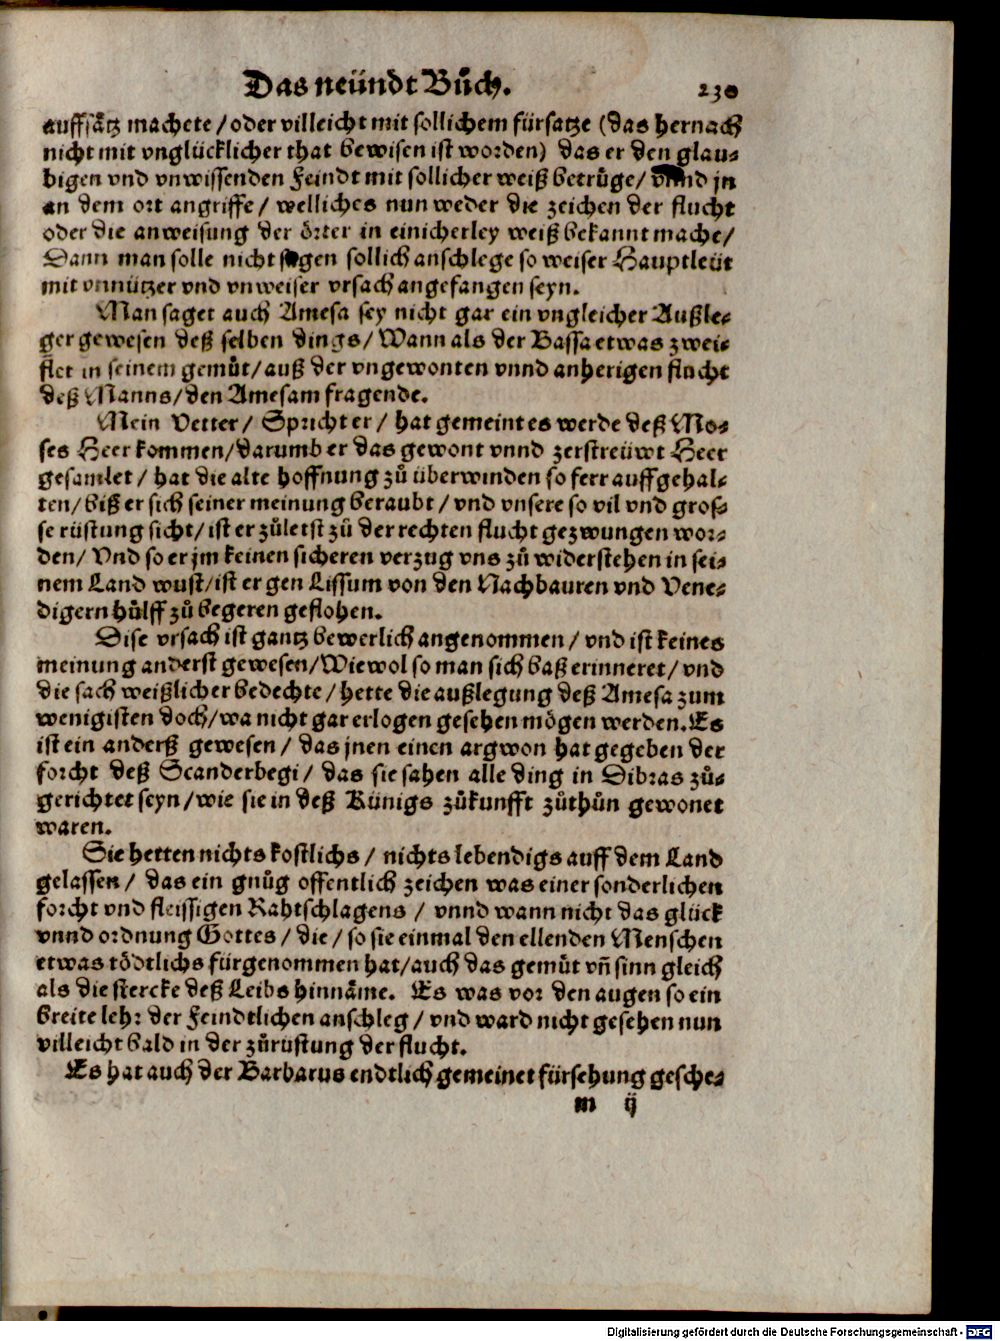 Das neündt Bůch. 230
auffsätz machete / oder villeicht mit sollichem fürsatze (das hernach
nicht mit vnglücklicher that bewisen ist worden) das er den glau-
bigen vnd vnwissenden Feindt mit sollicher weiß betrüge / vnnd jn
an dem ort angriffe / welliches nun weder die zeichen der flucht
oder die anweisung der örter in einicherley weiß bekannt mache /
Dann man solle nicht sagen sollich anschlege so weiser Hauptleüt
mit vnnützer vnd vnweiser vrsach angefangen seyn.
Man saget auch Amesa sey nicht gar ein vngleicher Außle-
ger gewesen deß selben dings / Wann als der Bassa etwas zwei-
flet in seinem gemüt / auß der vngewonten vnnd anherigen flucht
deß Manns / den Amesam fragende.
Mein Vetter / Spricht er / hat gemeint es werde deß Mo-
ses Heer kommen / darumb er das gewont vnnd zerstreüwt Heer
gesamlet / hat die alte hoffnung zů überwinden so ferr auffgehal-
ten / biß er sich seiner meinung beraubt / vnd vnsere so vil vnd gros-
se rüstung sicht / ist er zůletst zů der rechten flucht gezwungen wor-
den / Vnd so er jm keinen sicheren verzug vns zů widerstehen in sei-
nem Land wust / ist er gen Lissum von den Nachbauren vnd Vene-
digern hülff zů begeren geflohen.
Dise vrsach ist gantz bewerlich angenommen / vnd ist keines
meinung anderst gewesen / Wiewol so man sich baß erinneret / vnd
die sach weißlicher bedechte / hette die außlegung deß Amesa zum
wenigisten doch / wa nicht gar erlogen gesehen mögen werden. Es
ist ein anderß gewesen / das jnen einen argwon hat gegeben der
forcht deß Scanderbegi / das sie sahen alle ding in Dibras zů-
gerichtet seyn / wie sie in deß Künigs zůkunfft zůthůn gewonet
waren.
Sie hetten nichts kostlichs / nichts lebendigs auff dem Land
gelassen / das ein gnůg offentlich zeichen was einer sonderlichen
forcht vnd fleissigen Rahtschlagens / vnnd wann nicht das glück
vnnd ordnung Gottes / die / so sie einmal den ellenden Menschen
etwas tödtlichs fürgenommen hat / auch das gemüt vñ sinn gleich
als die stercke deß Leibs hinnäme. Es was vor den augen so ein
breite lehr der Feindtlichen anschleg / vnd ward nicht gesehen nun
villeicht bald in der zůrüstung der flucht.
Es hat auch der Barbarus endtlich gemeinet fürsehung gesche-
m ij
Digitalisierung gefördert durch die Deutsche Forschungsgemeinschaft - DFG